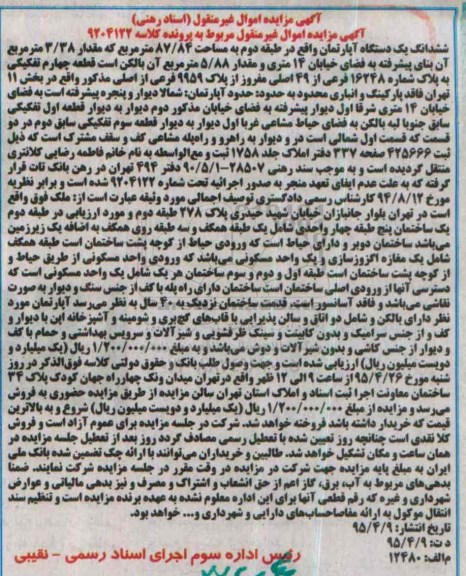 آگهی مزایده اموال غیرمنقول (اسناد رهنی)
آگهی مزایده اموال غیرمنقول مربوط به پرونده کلاسه ۹۲۰۴۱۲۲
ششدانگ یک دستگاه آپارتمان واقع در طبقه دوم به مساحت ۸۷/۸۴ مترمربع که مقدار ۳/۳۸ مترمربع
آن بنای پیشرفته به فضای خیابان ۱۴ متری و مقدار ۵/۸۸ مترمربع آن بالکن است قطعه چهارم تفکیکی
به پلاک شماره ۱۶۲۴۸ فرعی از ۴۹ اصلی مفروز از پلاک ۹۹۵۹ فرعی از اصلی مذکور واقع در بخش ۱۱
تهران فاقد پارکینگ و انباری محدود به حدود: حدود آپارتمان: شمالا دیوار وپنجره پیشرفته است به فضای
خیابان ۱۴ متری شرقا اول دیوار پیشرفته به فضای خیابان مذکور دوم دیوار به دیوار قطعه اول تفکیکی
سابق جنوبا لبه بالکن به فضای حیاط مشاعی غربا اول دیوار به دیوار قطعه سوم تفکیکی سابق دوم در دو
قسمت که قسمت اول شمالی است در و دیوار به راهرو و راه‌پله مشاعی کف و سقف مشترک است که ذیل
ثبت ۴۲۵۶۶۶ صفحه ۳۳۷ دفتر املاک جلد ۱۷۵۸ ثبت و مع‌الواسطه به نام خانم فاطمه رضایی کلانتری
منتقل گردیده است و به موجب سند رهنی ۲۸۵۰۷-۹۰/۵/۱ دفتر ۴۹۳ تهران در رهن بانک تات قرار
گرفته که به علت عدم ایفای تعهد منجر به صدور اجرائیه تحت شماره ۹۲۰۴۱۲۲ شده است و برابر نظریه
مورخ ۹۴/۸/۱۲ کارشناس رسمی دادگستری توصیف اجمالی مورد وثیقه عبارت است از: ملک فوق واقع
است در تهران بلوار جانبازان خیابان شهید حیدری پلاک ۲۷۸ طبقه دوم و مورد ارزیابی در طبقه دوم
یک ساختمان پنج طبقه چهار واحدی شامل یک طبقه همکف و سه طبقه روی همکف به اضافه یک زیرزمین
می‌باشد ساختمان دوبر و دارای حیاط است که ورودی حیاط از کوچه پشت ساختمان است طبقه همکف
شامل یک مغازه اگزوزسازی و یک واحد مسکونی می‌باشد که ورودی واحد مسکونی از طریق حیاط و
از کوچه پشت ساختمان است طبقه اول و دوم و سوم ساختمان هر یک شامل یک واحد مسکونی است که
دسترسی آنها از ورودی اصلی ساختمان است ساختمان دارای راه پله با کف از جنس سنگ و دیوار به صورت
نقاشی می‌باشد و فاقد آسانسور است. قدمت ساختمان نزدیک به ۴۰ سال به نظر می‌رسد آپارتمان مورد
نظر دارای بالکن و شامل دو اتاق و سالن پذیرایی با قاب‌های گچبری و شومینه و آشپزخانه اپن با دیوار و
کف و از جنس سرامیک و بدون کابینت و سینک ظرفشویی و شیرآلات و سرویس بهداشتی و حمام با کف
و دیوار از جنس کاشی و بدون شیرآلات و دوش می‌باشد و به مبلغ ۱/۲۰۰/۰۰۰/۰۰۰ ریال (یک میلیارد و
دویست میلیون ریال) ارزیابی شده است و جهت وصول طلب بانک و حقوق دولتی کلاسه فوق‌الذکر در روز
شنبه مورخ ۹۵/۴/۲۶ از ساعت ۹ الی ۱۲ ظهر واقع درتهران میدان ونک چهارراه جهان کودک پلاک ۳۴
ساختمان معاونت اجرا ثبت اسناد و املاک استان تهران سالن مزایده از طریق مزایده حضوری به فروش
می‌رسد و مزایده از مبلغ ۱/۲۰۰/۰۰۰/۰۰۰ ریال (یک میلیارد و دویست میلیون ریال) شروع و به بالاترین
قیمت که خریدار داشته باشد فروخته خواهد شد. شرکت در جلسه مزایده برای عموم آزاد است و فروش
کلا نقدی است چنانچه روز تعیین شده با تعطیل رسمی مصادف گردد روز بعد از تعطیل جلسه مزایده در
همان ساعت و مکان تشکیل خواهد شد. طالبین و خریداران می‌توانند با ارائه چک تضمین شده بانک ملی
ایران به مبلغ پایه مزایده جهت شرکت در مزایده در وقت مقرر در جلسه مزایده شرکت نمایند. ضمنا
بدهی‌های مربوط به آب، برق، گاز اعم از حق انشعاب و اشتراک و مصرف و نیز بدهی مالیاتی و عوارض
شهرداری و غیره که رقم قطعی آنها برای این اداره معلوم نشده به عهده برنده مزایده است و تنظیم سند
انتقال موکول به ارائه مفاصاحساب‌های دارایی و شهرداری و... خواهد بود.
تاریخ انتشار: ۹۵/۴/۹
د ت: ۹۵/۴/۹
م‌الف: ۱۲۴۸۰
رئیس اداره سوم اجرای اسناد رسمی - نقیبی